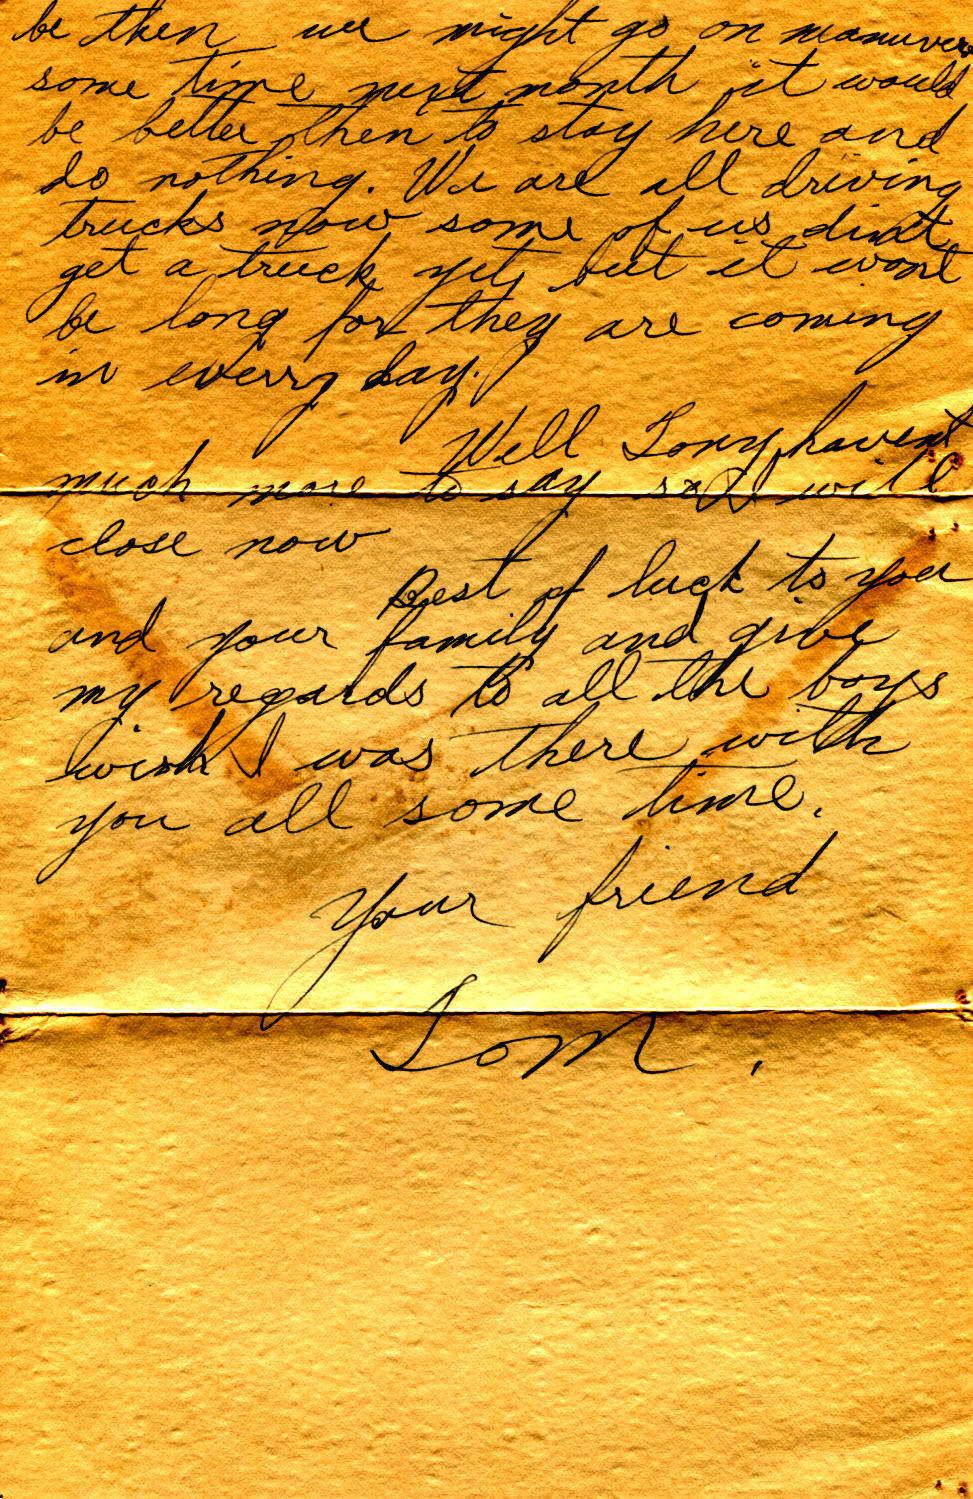 be then we might go on manuvers
some time next month it would
be better then to stay here and
do nothing. We are all driving
trucks now some of us dint
get a truck yet, but it wont
be long for they are coming
in every day.
Well Tony, havent
much more to say so I will
close now
Best of luck to you
and your family and give
my regards to all the boys
wish I was there with
you all some time.
Your friend
Tom.